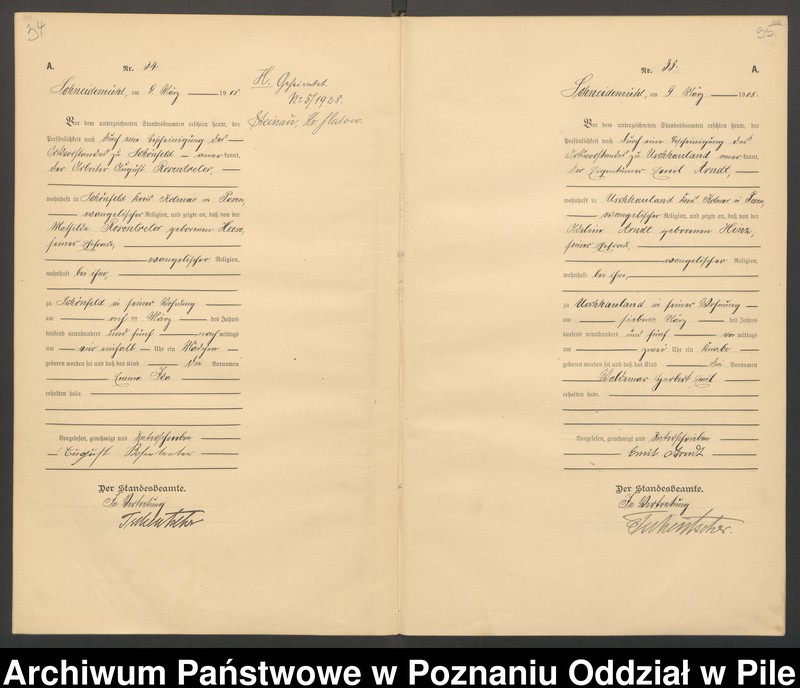 34
A.
Nr. 34.
Schneidemühl, am 9. März 1905
Vor dem unterzeichneten Standesbeamten erschien heute, der
Persönlichkeit nach durch eine Bescheinigung des
Ortsvorstandes zu Schönfeld anerkannt,
der Arbeiter August Rosentreter,
wohnhaft in Schönfeld Kreis Kolmar in Posen,
evangelischer Religion, und zeigte an, daß von der
Mathilde Rosentreter geborenen Hinz,
seiner Ehefrau,
evangelischer Religion,
wohnhaft bei ihm,
zu Schönfeld in seiner Wohnung
am März des Jahres
tausend neunhundert und fünf nachmittags
um vier einhalb Uhr ein Mädchen
geboren worden sei und daß das Kind die Vornamen
Emma Ida
erhalten habe.
Vorgelesen, genehmigt und unterschrieben
August Rosentreter
Der Standesbeamte.
In Vertretung
H. Geheiratet
Nr. 5/1928.
Steinau, Kr. Flatow.
35
A.
Nr. 35.
Schneidemühl, am 9. März 1905.
Vor dem unterzeichneten Standesbeamten erschien heute, der
Persönlichkeit nach durch eine Bescheinigung des
Ortsvorstandes zu Uschhauland anerkannt,
der Eigentümer Emil Arndt,
wohnhaft in Uschhauland Kreis Kolmar in Posen,
evangelischer Religion, und zeigte an, daß von der
Arndt geborenen Hinz,
seiner Ehefrau,
evangelischer Religion,
wohnhaft bei ihm,
zu Uschhauland in seiner Wohnung
am sieben März des Jahres
tausend neunhundert und fünf vormittags
um zwei Uhr ein Knabe
geboren worden sei und daß das Kind die Vornamen
Waldemar Herbert Emil
erhalten habe.
Vorgelesen, genehmigt und unterschrieben
Emil Arndt
Der Standesbeamte.
In Vertretung
Archiwum Państwowe w Poznaniu Oddział w Pile